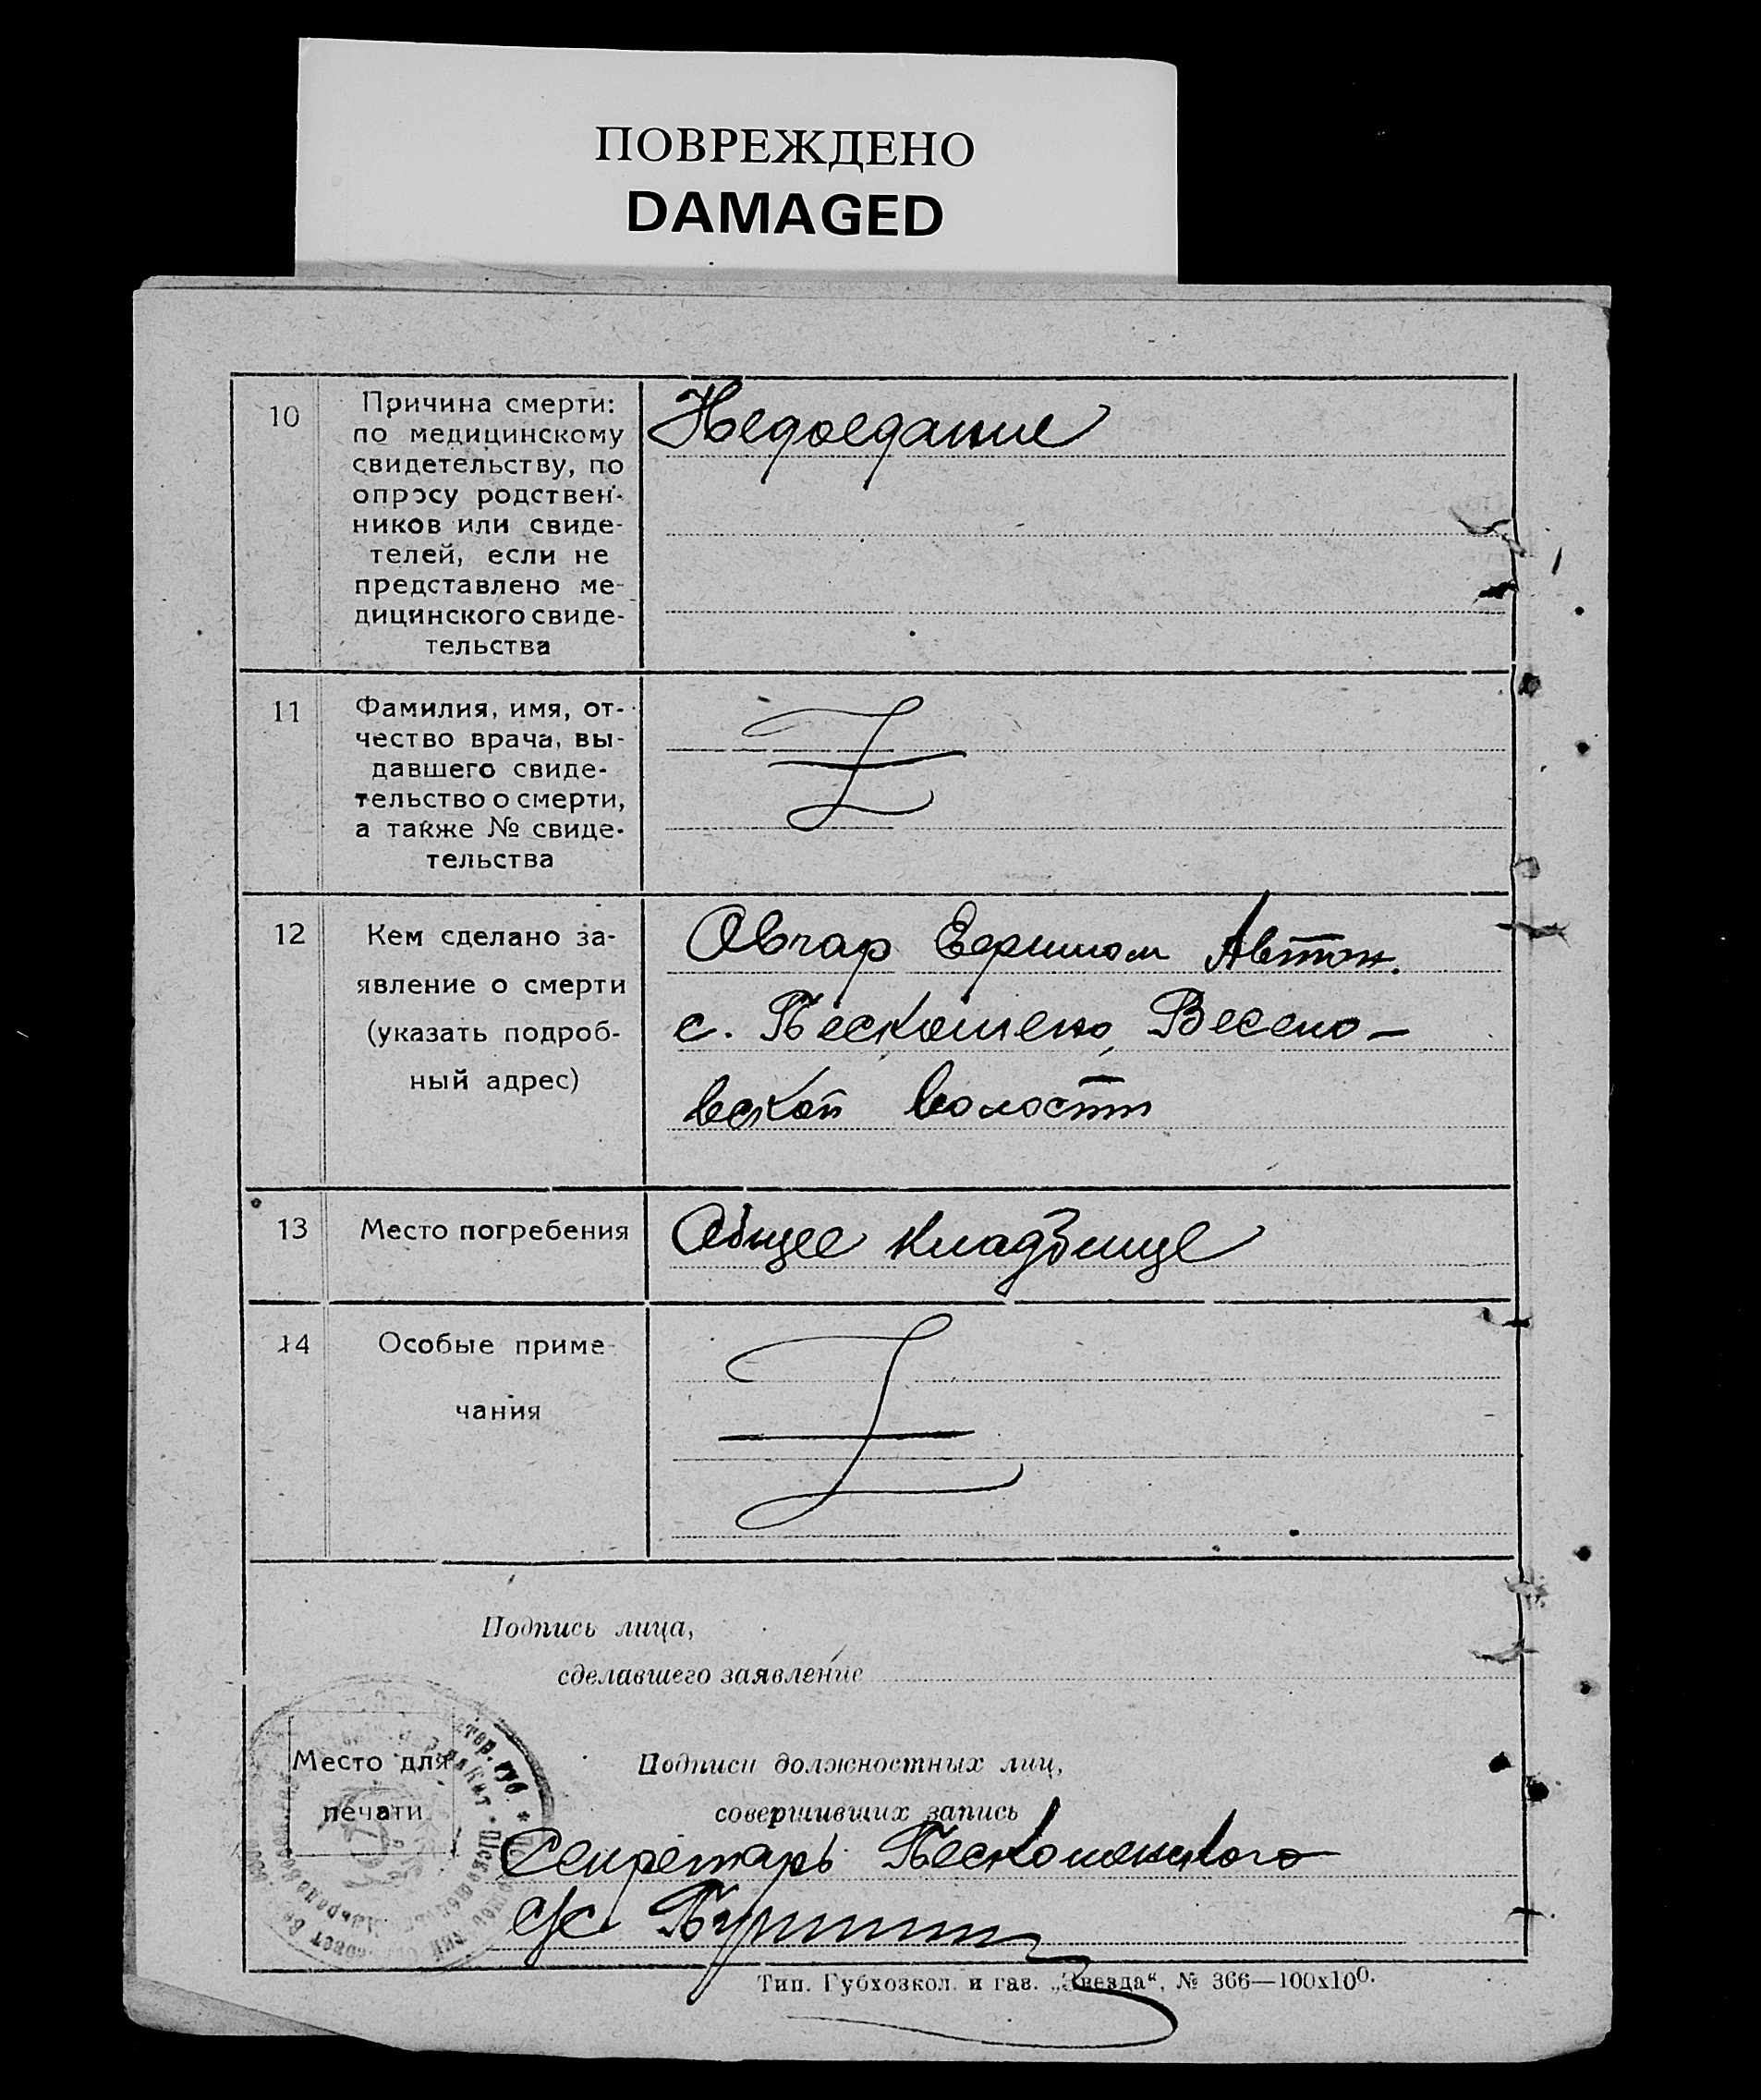 ПОВРЕЖДЕНО
DAMAGED
10
Причина смерти:
по медицинскому
свидетельству, по
опросу родствен-
ников или свиде-
телей, если не
представлено ме-
дицинского свиде-
тельства
Недоедание
11
Фамилия, имя, от-
чество врача, вы-
давшего свиде-
тельство о смерти,
а также № свиде-
тельства
12
Кем сделано за-
явление о смерти
(указать подроб-
ный адрес)
Овчар Автон.
с. Весело-
вской волости
13
Место погребения
Общее кладбище
14
Особые приме-
чания
Подпись лица,
сделавшего заявление
Место для
печати
Подписи должностных лиц,
совершивших запись
Секретарь
с/с
Тип. Губхозкол. и газ. „Звезда“, № 366—100х100.